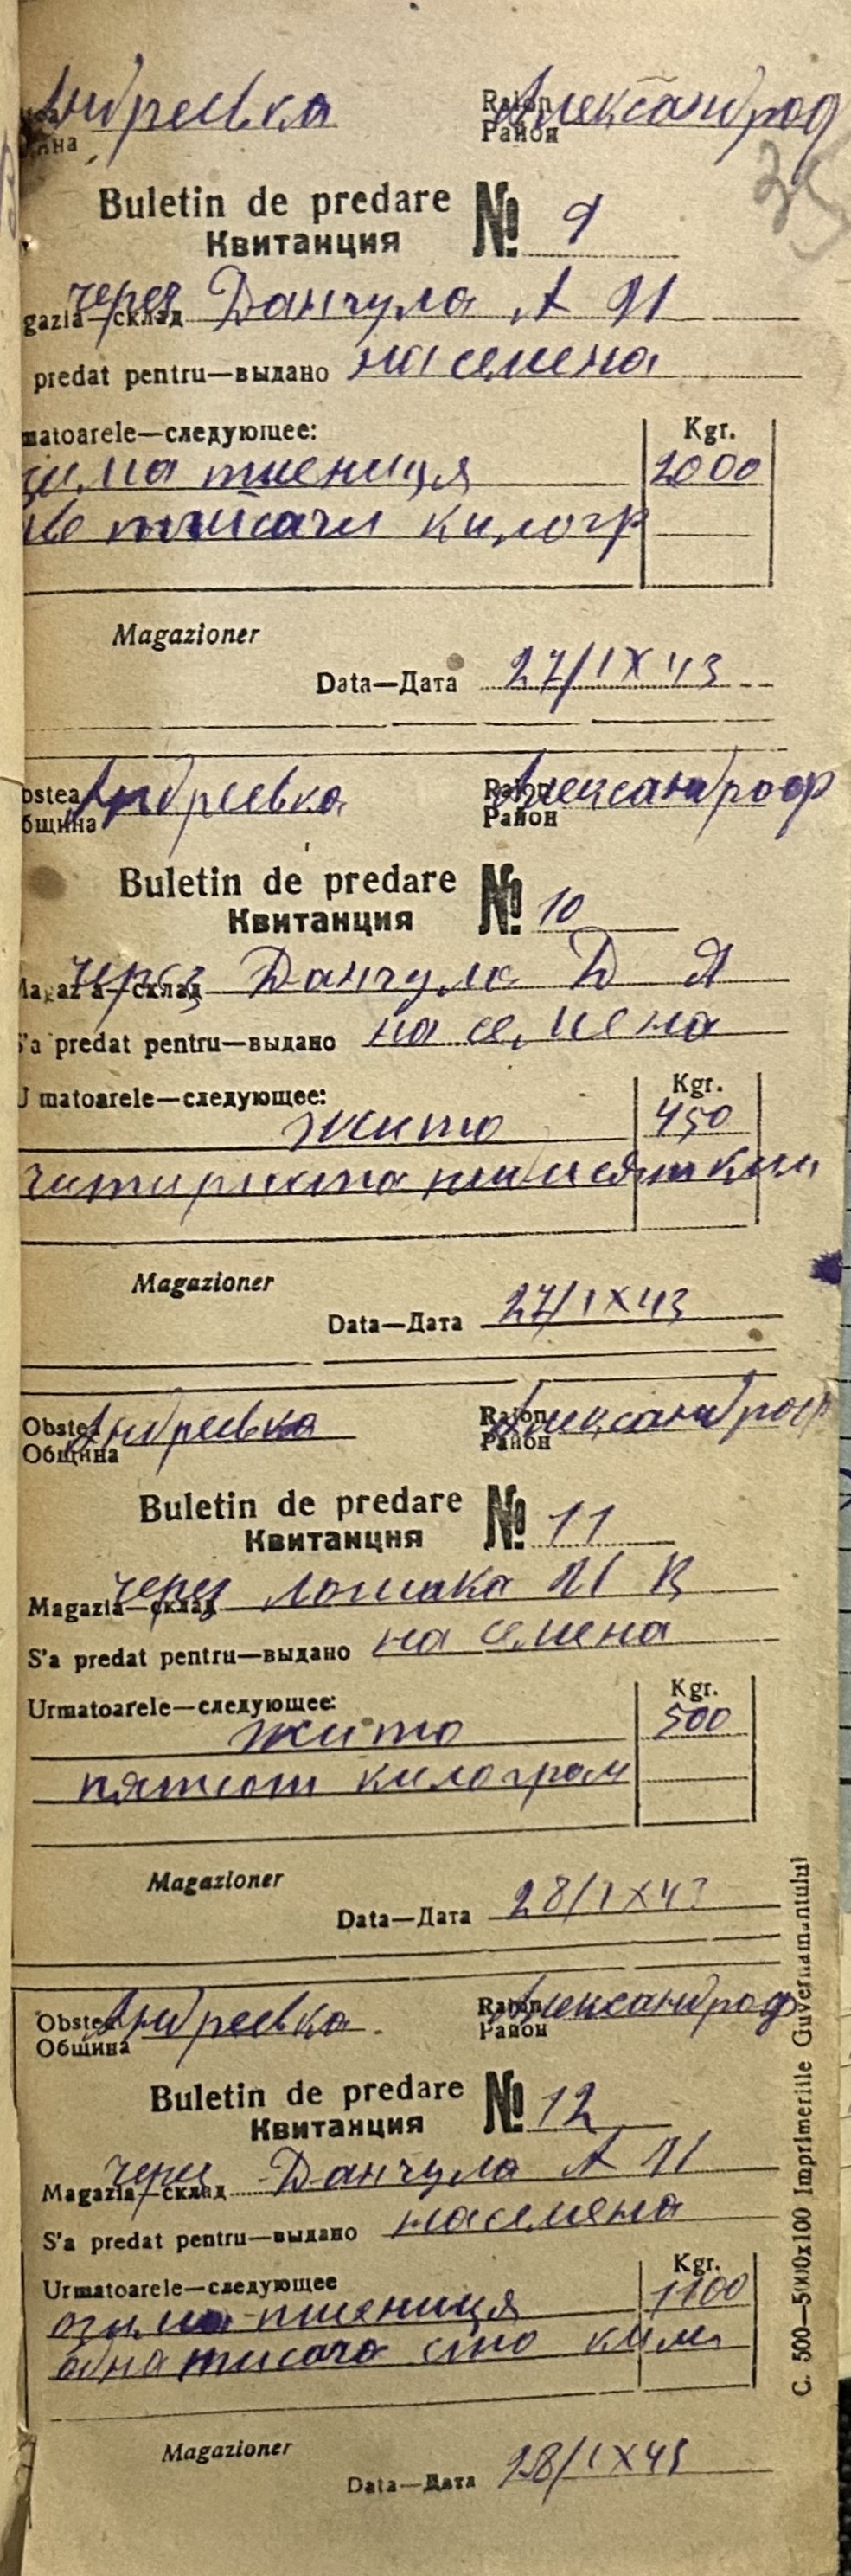 Андреевка Raion Александроф
щина Район
35
Buletin de predare № 9
Квитанция
gazia—склад через Данчула А И
predat pentru—выдано на семена
matoarele—следующее: Kgr.
зима пшениця 2000
две тисячи килогр
Magazioner
Data—Дата 27/IX 43
bstea Андреевка Raion Александроф
бщина Район
Buletin de predare № 10
Квитанция
Magazia—склад через Данчула Д Я
S'a predat pentru—выдано на семена
Urmatoarele—следующее: Kgr.
жито 450
читириста пятдесят кил
Magazioner
Data—Дата 27/IX 43
Obstea Андреевка Raion Александроф
Община Район
Buletin de predare № 11
Квитанция
Magazia—склад через Лошака И В
S'a predat pentru—выдано на семена
Urmatoarele—следующее: Kgr.
жито 500
пятсот килограм
Magazioner
Data—Дата 28/IX 43
Obstea Андреевка Raion Александроф
Община Район
Buletin de predare № 12
Квитанция
Magazia—склад через Данчула А И
S'a predat pentru—выдано на семена
Urmatoarele—следующее Kgr.
озима пшениця 1100
одна тисача сто килм
Magazioner
Data—Дата 28/IX 43
C. 500—5000x100 Imprimeriile Guvernamantului